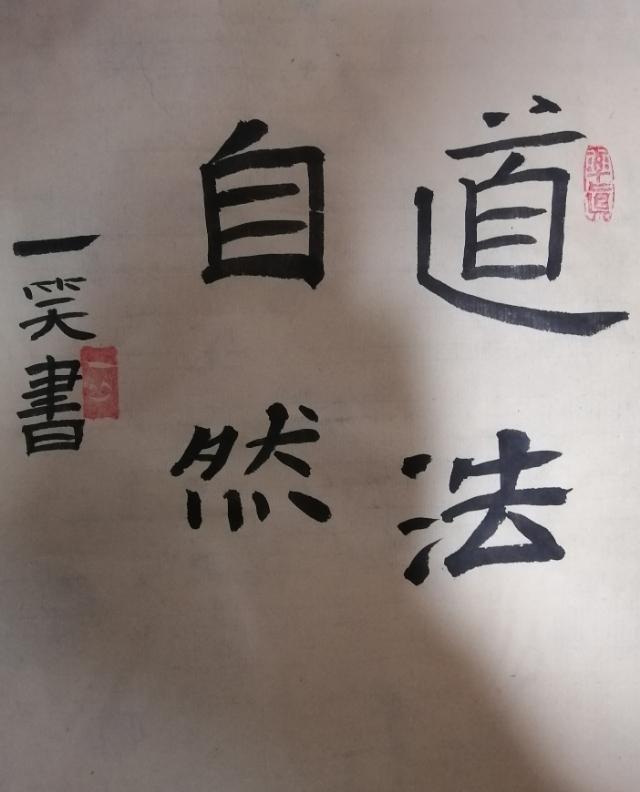 道法
自然
一笑書